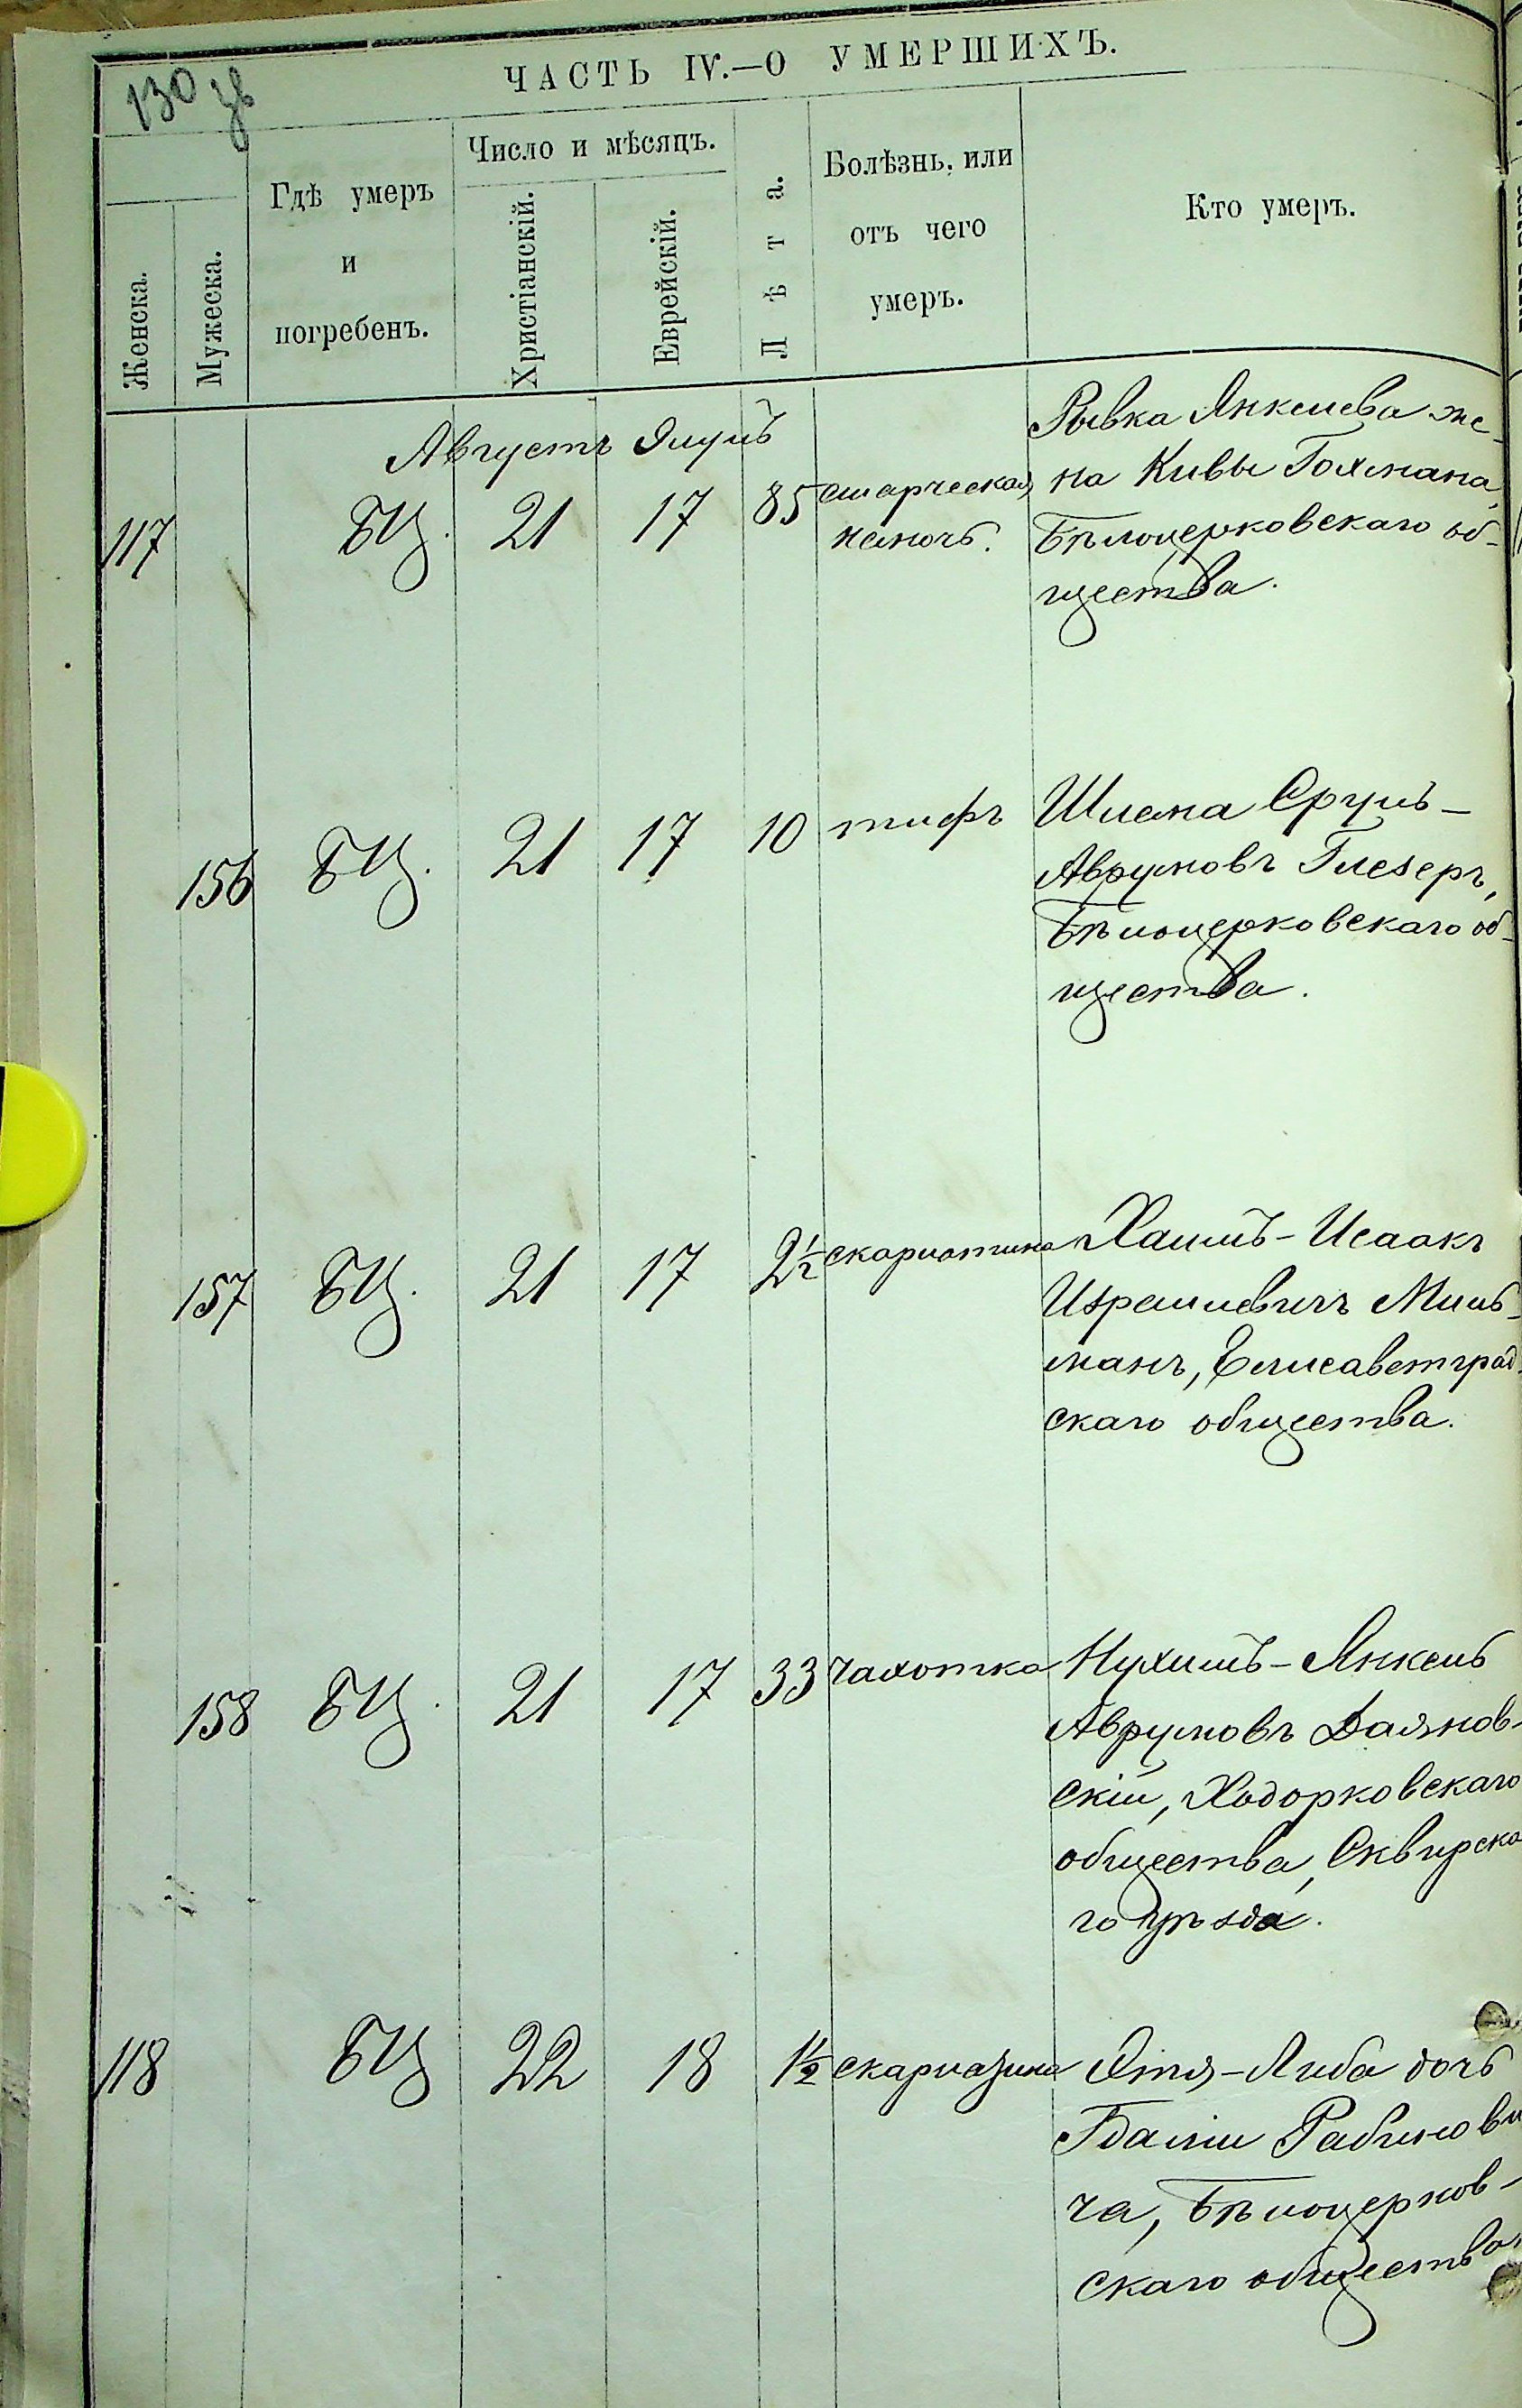 130 зв
ЧАСТЬ IV.—О УМЕРШИХЪ.
Женска.
Мужеска.
Гдѣ умеръ
и
погребенъ.
Число и мѣсяцъ.
Христіанскій.
Еврейскій.
Лѣта.
Болѣзнь, или
отъ чего
умеръ.
Кто умеръ.
Августъ Элулъ
117 БЦ. 21 17 85 старческая
немочь.
Рывка Янкелева же-
на Кивы Гохмана,
Бѣлоцерковскаго об-
щества.
156 БЦ. 21 17 10 тифъ
Шлема Сруль-
Аврумовъ Глезеръ,
Бѣлоцерковскаго об-
щества.
157 БЦ. 21 17 2½ скарлатина
Хаимъ-Исаакъ
Израилевичъ Миль-
манъ, Елисаветград-
скаго общества.
158 БЦ. 21 17 33 чахотка
Нухимъ-Янкель
Аврумовъ Даянов-
скій, Ходорковскаго
общества, Сквирска
го уѣзда.
118 БЦ 22 18 1½ скарлатина
Этя-Либа дочь
Гдаліи Рабинови
ча, Бѣлоцерков-
скаго общества.